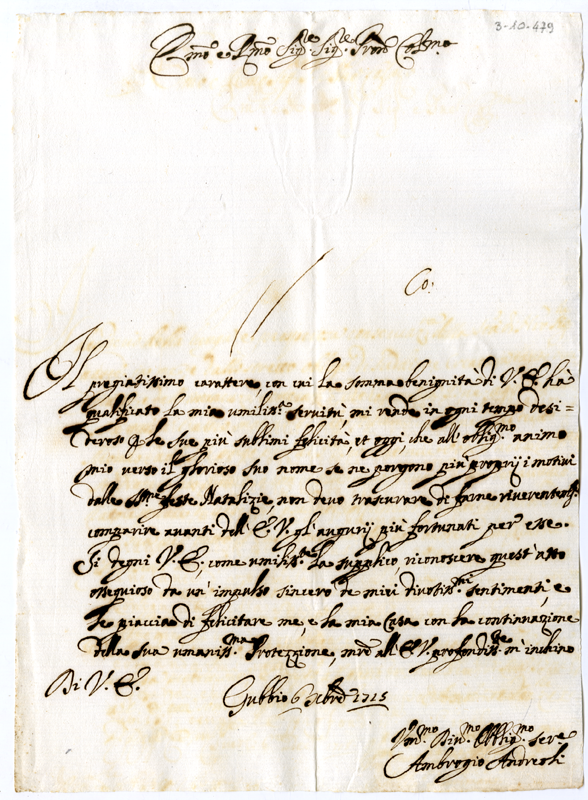 3-10-479
Em.mo e R.mo Sig.re Sig.re Pron Col.mo
Co:
Il pregiatissimo carattere, con cui la somma benignità di V. E. hà
qualificato la mia umiliss.a servitù, mi rende in ogni tempo desi=
deroso le sue più sublimi felicità, et oggi, che all' obblig.mo animo
mio verso il glorioso suo nome se ne porgono più proprij i motivi
dalle S.me feste Natalizie, non devo trascurare di farne riverentem.e
comparire avanti dell' E. V. gl' augurij più fortunati per esse.
Si degni V. E., come umiliss.te la supplico riconoscere quest' atto
ossequioso da un' impulso sincero de miei divotiss.mi sentimenti, e
le piaccia di felicitare me, e la mia Casa con la continuazione
della sua umaniss.ma Protezzione, mrẽ all' E. V. profondiss.te m' inchino
Di V. E.
Gubbio 6 Xbre 1715
Um.mo Div.mo Obblig.mo serv.e
Ambrogio Andreoli